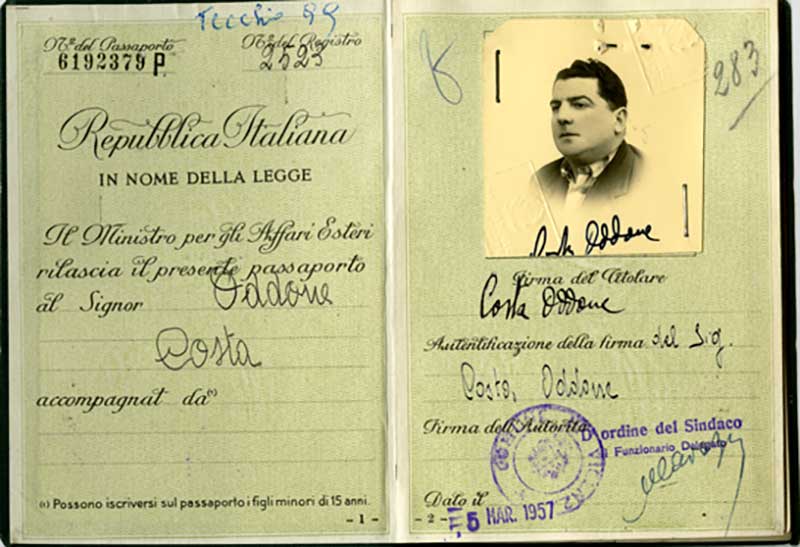 Tecchio 99
N° del Passaporto N° del Registro
6192379 P 2523
Repubblica Italiana
IN NOME DELLA LEGGE
Il Ministro per gli Affari Esteri
rilascia il presente passaporto
al Signor Oddone
Costa
accompagnat da⁽¹⁾
(1) Possono iscriversi sul passaporto i figli minori di 15 anni.
- 1 -
8
283
Costa Oddone
Firma del Titolare
Costa Oddone
Autentificazione della firma del Sig.
Costa, Oddone
Firma dell'Autorità
D'ordine del Sindaco
Il Funzionario Delegato
Dato il
5 MAR. 1957
- 2 -